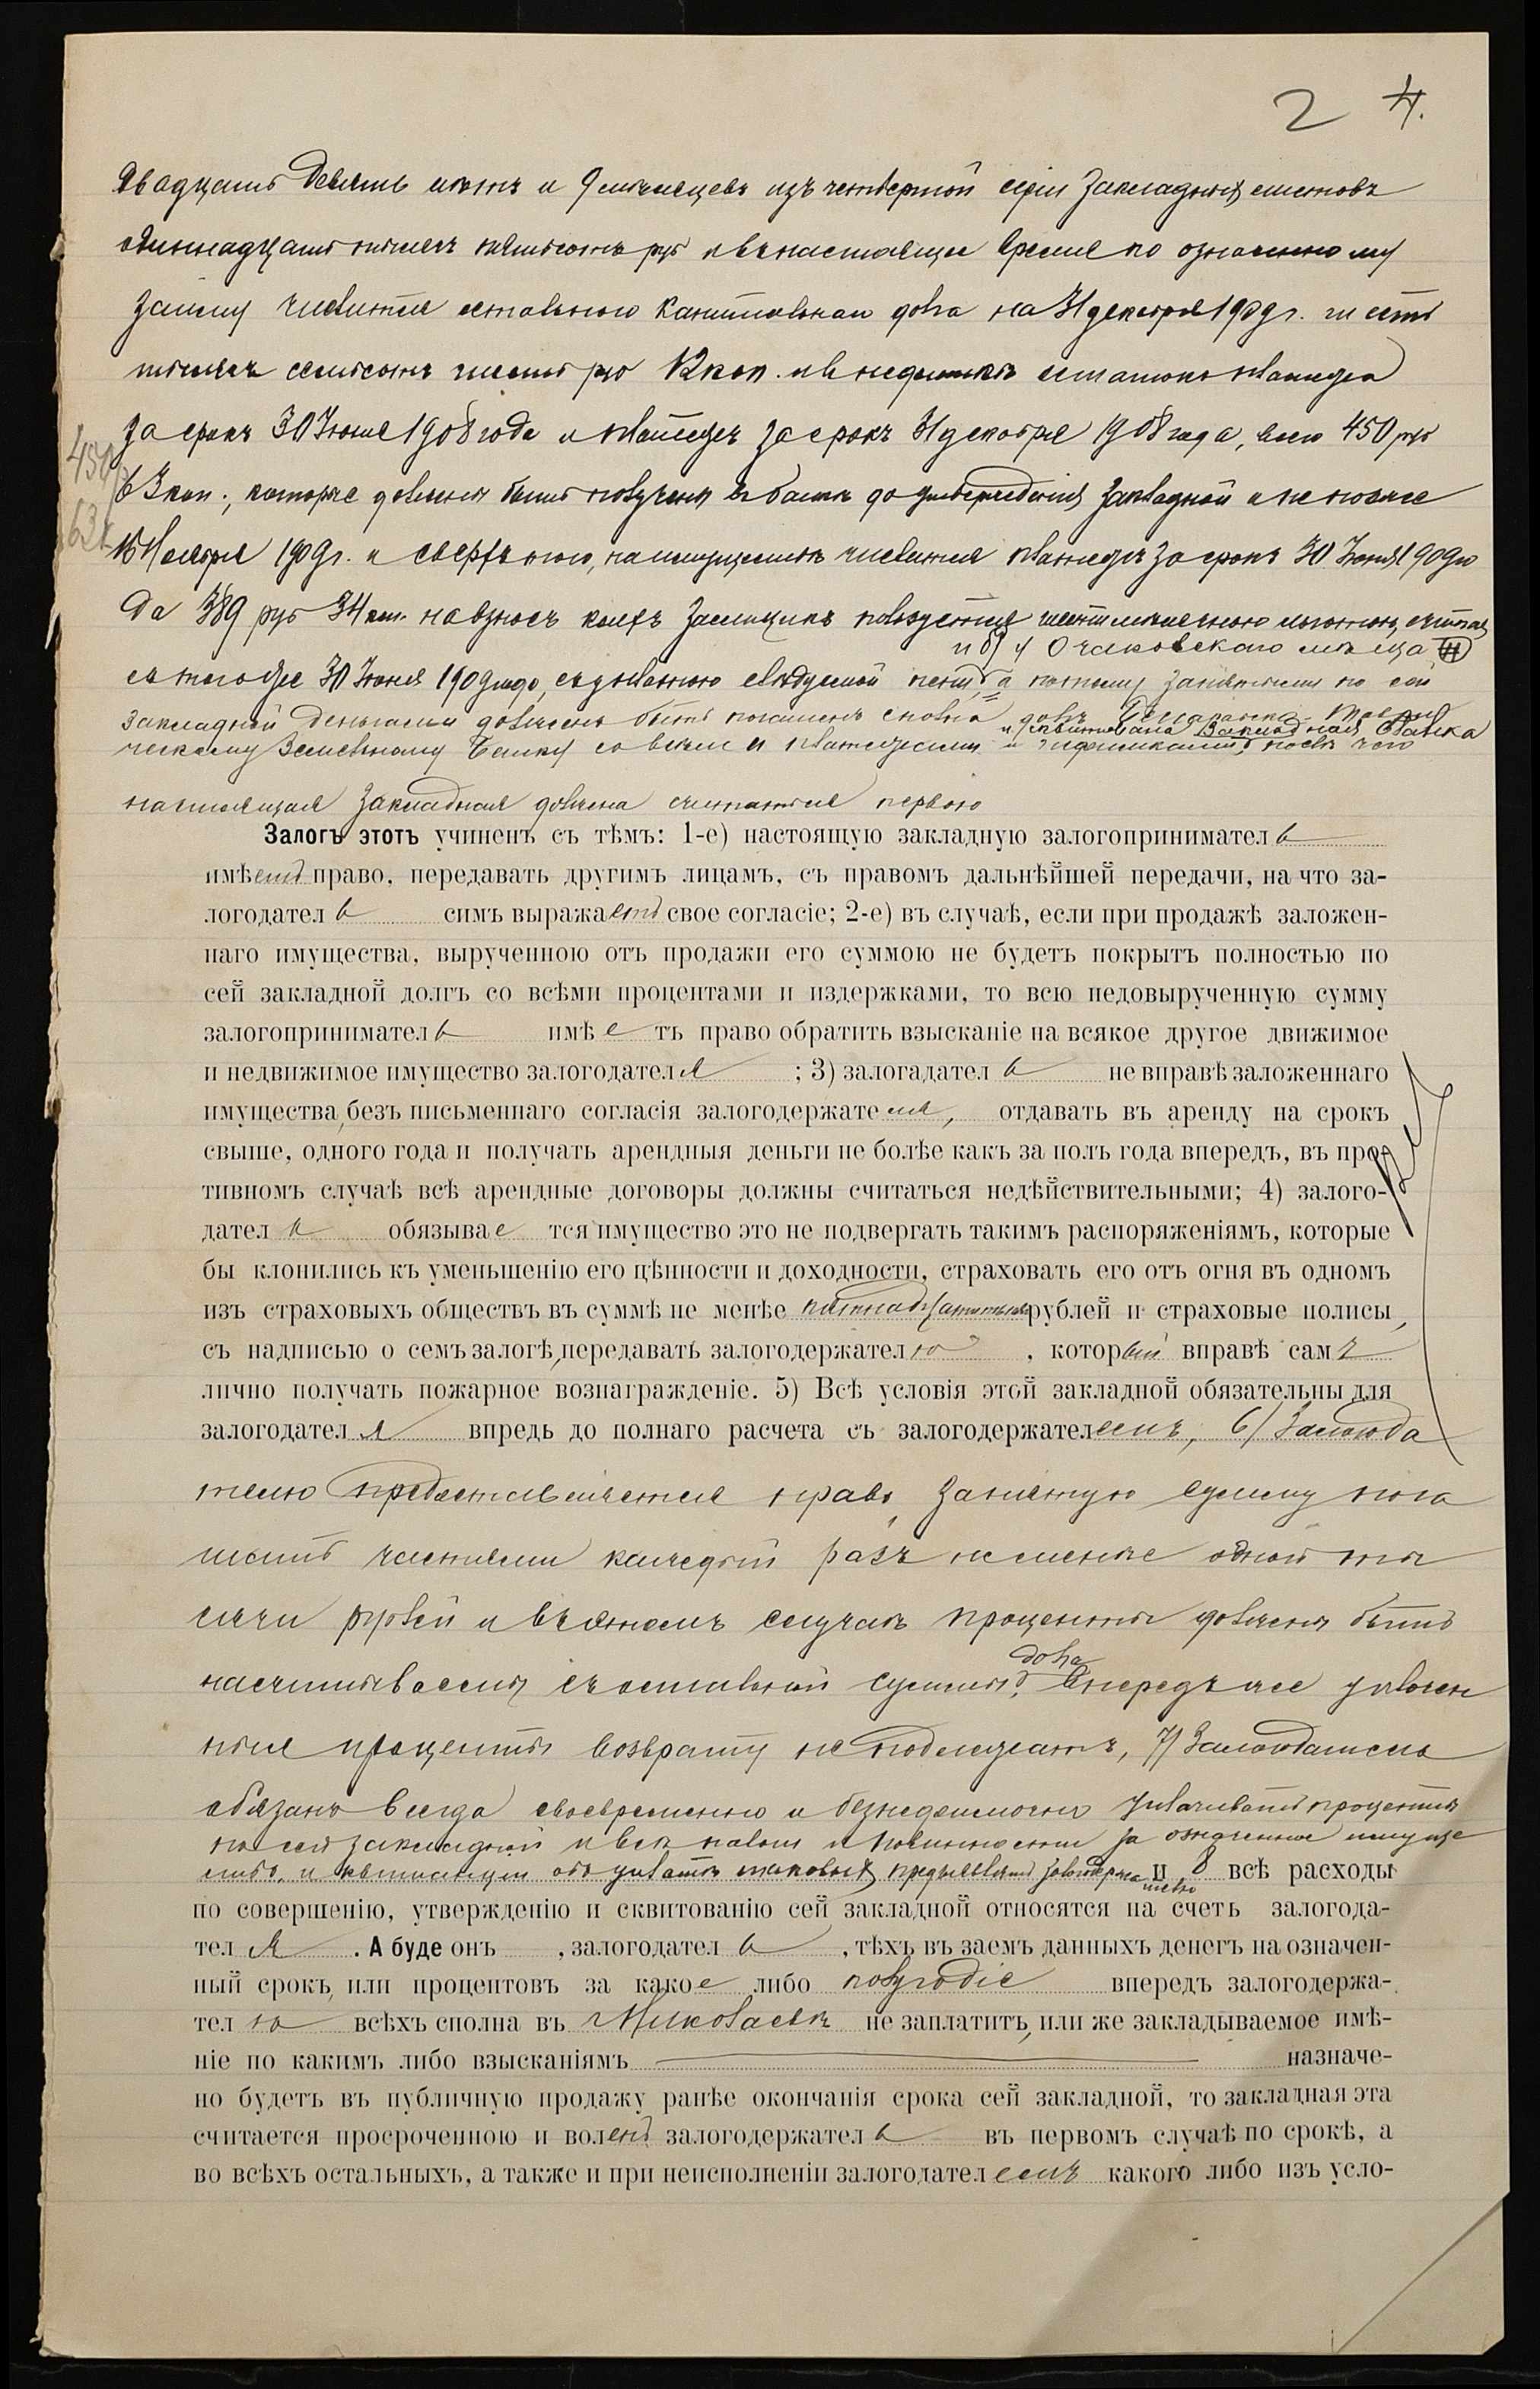 2 4.
двадцать девять лѣтъ и 9 мѣсяцевъ изъ четвертой серіи закладныхъ листовъ
одиннадцать тысячъ пятьсотъ руб и въ настоящее время по означенному
займу числится остального капитальнаго долга на 31 декабря 1909 г. шесть
тысячъ семьсотъ шесть руб 12 коп. и въ недоимкѣ остатокъ платежа
за срокъ 30 Іюня 1908 года и платежъ за срокъ 31 декабря 1908 года, всего 450 руб
450
63 коп., которые должны быть получены въ банкѣ до утвержденія закладной и не позже
63 к
15 Ноября 1909 г. и сверхъ того, на имуществѣ числится платежъ за срокъ 30 Іюня 1909 го
да 389 руб 34 коп. на взносъ коихъ заемщикъ пользуется шестимѣсячною льготою, считая
и 8) у Очаковскаго мѣща
съ того же 30 Іюня 1909 года, съ уплатою слѣдуемой пени, а потому занятыми по сей
закладной деньгами долженъ быть погашенъ сполна долгъ Бессарабско-Таври
и сквитована Закладная Банка
ческому Земельному Банку со всѣми платежами и недоимками, послѣ чего
настоящая закладная должна считаться первою
Залогъ этотъ учиненъ съ тѣмъ: 1-е) настоящую закладную залогопринимател ь
имѣетъ право, передавать другимъ лицамъ, съ правомъ дальнѣйшей передачи, на что за-
логодател ь симъ выражаетъ свое согласіе; 2-е) въ случаѣ, если при продажѣ заложен-
наго имущества, вырученною отъ продажи его суммою не будетъ покрытъ полностью по
сей закладной долгъ со всѣми процентами и издержками, то всю недовырученную сумму
залогопринимател ь имѣ е тъ право обратить взысканіе на всякое другое движимое
и недвижимое имущество залогодател я ; 3) залагадател ь не вправѣ заложеннаго
имущества, безъ письменнаго согласія залогодержате ля, отдавать въ аренду на срокъ
свыше, одного года и получать арендныя деньги не болѣе какъ за полъ года впередъ, въ про-
тивномъ случаѣ всѣ арендные договоры должны считаться недѣйствительными; 4) залого-
дател ь обязывае тся имущество это не подвергать такимъ распоряженіямъ, которые
бы клонились къ уменьшенію его цѣнности и доходности, страховать его отъ огня въ одномъ
изъ страховыхъ обществъ въ суммѣ не менѣе пятнадцати тыс рублей и страховые полисы,
съ надписью о семъ залогѣ, передавать залогодержател ю , который вправѣ сам ъ
лично получать пожарное вознагражденіе. 5) Всѣ условія этой закладной обязательны для
залогодател я впредь до полнаго расчета съ залогодержателемъ, 6) Залогода
телю предоставляется право, занятую сумму пога
шать частями каждый разъ не менѣе одной ты
сячи рублей и въ этомъ случаѣ проценты должны быть
долга
насчитываемы съ остальной суммы, Впередъ же уплачен
ные проценты возврату не подлежатъ, 7) Залогодатель
обязанъ всегда своевременно и безнедоимочно уплачивать проценты
по сей закладной и всѣ налоги и повинности за означенное имуще
ство, и квитанціи объ уплатѣ таковыхъ предъявлять залогодержа и 8 всѣ расходы
телю
по совершенію, утвержденію и сквитованію сей закладной относятся на счетъ залогода-
тел я . А буде онъ , залогодател ь , тѣхъ въ заемъ данныхъ денегъ на означен-
ный срокъ, или процентовъ за какое либо полугодіе впередъ залогодержа-
тел ю всѣхъ сполна въ Николаевѣ не заплатитъ, или же закладываемое имѣ-
ніе по какимъ либо взысканіямъ назначе-
но будетъ въ публичную продажу ранѣе окончанія срока сей закладной, то закладная эта
считается просроченною и воленъ залогодержател ь въ первомъ случаѣ по срокѣ, а
во всѣхъ остальныхъ, а также и при неисполненіи залогодател емъ какого либо изъ усло-